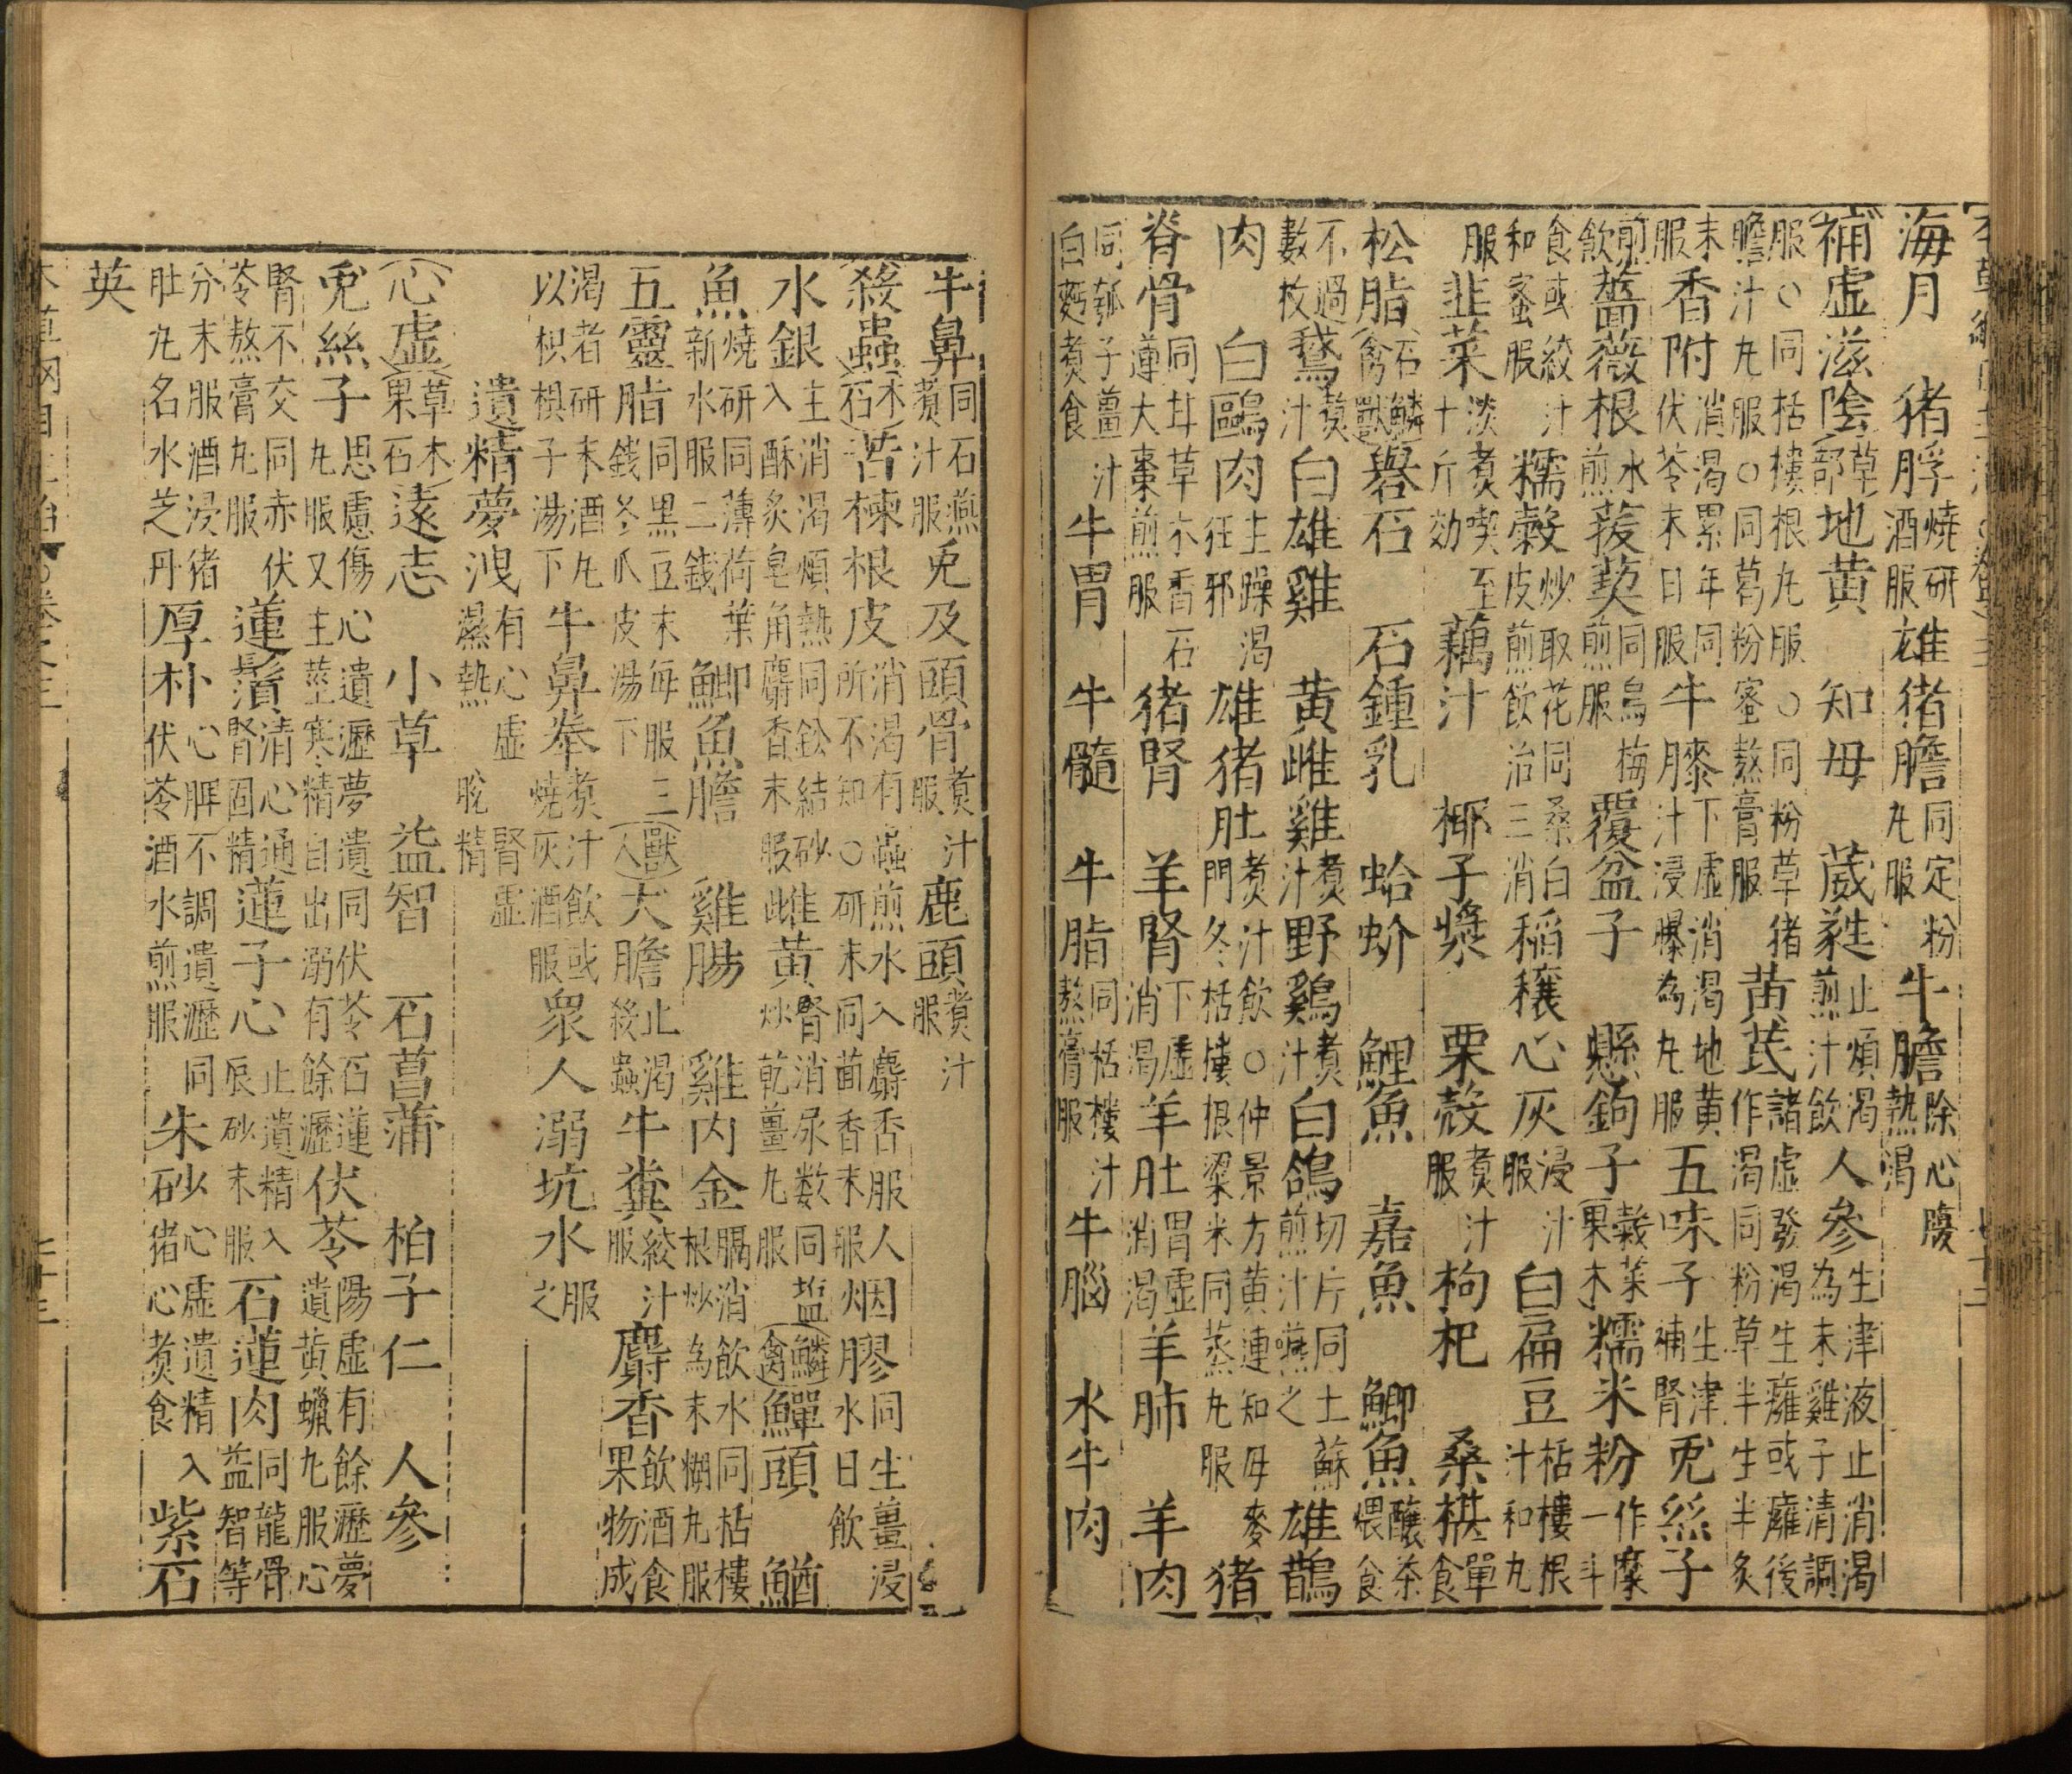 海月　豬脬燒研酒服雄豬膽同定粉丸服牛膽除心腹熱渴
補虛滋陰草部地黃　知母　葳蕤止煩渴煎汁飲人參生津液止消渴為末雞子清調
服○同栝樓根丸服○同粉草豬膽汁丸服○同葛粉蜜熬膏服黃芪諸虛發渴生癰或癰後作渴同粉草半生半炙
末服香附消渴累年同伏苓末日服牛膝下虛消渴地黃汁浸曝為丸服五味子生津補腎兎絲子
煎飲薔薇根水煎菝葜同烏梅煎服覆盆子　懸鉤子穀菜果木糯米粉作糜一斗
食或絞汁和蜜服糯穀炒取花同桑白皮煎飲治三消稻穰心灰浸汁服白扁豆栝樓根汁和丸
服韭菜淡煮喫至十斤効藕汁　椰子漿　栗殼煮汁服枸杞　桑椹單食
松脂石鱗禽獸礜石　石鍾乳　蛤蚧　鯉魚　嘉魚　鯽魚釀茶煨食
不過數枚鵞煮汁白雄雞　黃雌雞煮汁野鷄煮汁白鴿切片同土蘇煎汁嚥之雄鵲
肉　白鷗肉主躁渴狂邪雄豬肚煮汁飲○仲景方黃連知母麥門冬栝樓根粱米同蒸丸服豬
脊骨同甘草木香石蓮大棗煎服豬腎　羊腎下虛消渴羊肚胃虛消渴羊肺　羊肉
同瓠子薑汁白麪煮食牛胃　牛髓　牛脂同栝樓汁熬膏服牛腦　水牛肉
牛鼻同石燕煮汁服兎及頭骨煮汁服鹿頭煮汁服
殺蟲木石苦楝根皮消渴有蟲煎水入麝香服人所不知○研末同茴香末服烟膠同生薑浸水日飲
水銀主消渴煩熱同鉛結砂入酥炙皂角麝香末服雌黃腎消尿数同盐炒乾薑丸服鱗禽鱓頭　鰌
魚燒研同薄荷葉新水服二錢鯽魚膽　雞腸　雞內金膈消飲水同栝樓根炒為末糊丸服
五靈脂同黑豆末每服三錢冬瓜皮湯下獸人犬膽止渴殺蟲牛糞絞汁服麝香飲酒食果物成
渴者研末酒丸以枳椇子湯下牛鼻桊煮汁飲或燒灰酒服衆人溺坑水服之
遺精夢洩有心虛腎虛濕熱脫精
心虛草木果石遠志　小草　益智　石菖蒲　柏子仁　人參
兎絲子思慮傷心遺瀝夢遺同伏苓石蓮丸服又主莖寒精自出溺有餘瀝伏苓陽虛有餘瀝夢遺黃蠟丸服心
腎不交同赤伏苓熬膏丸服蓮鬚清心通腎固精蓮子心止遺精入辰砂末服石蓮肉同龍骨益智等
分末服酒浸豬肚丸名水芝丹厚朴心脾不調遺瀝同伏苓酒水煎服朱砂心虛遺精入豬心煮食紫石
英